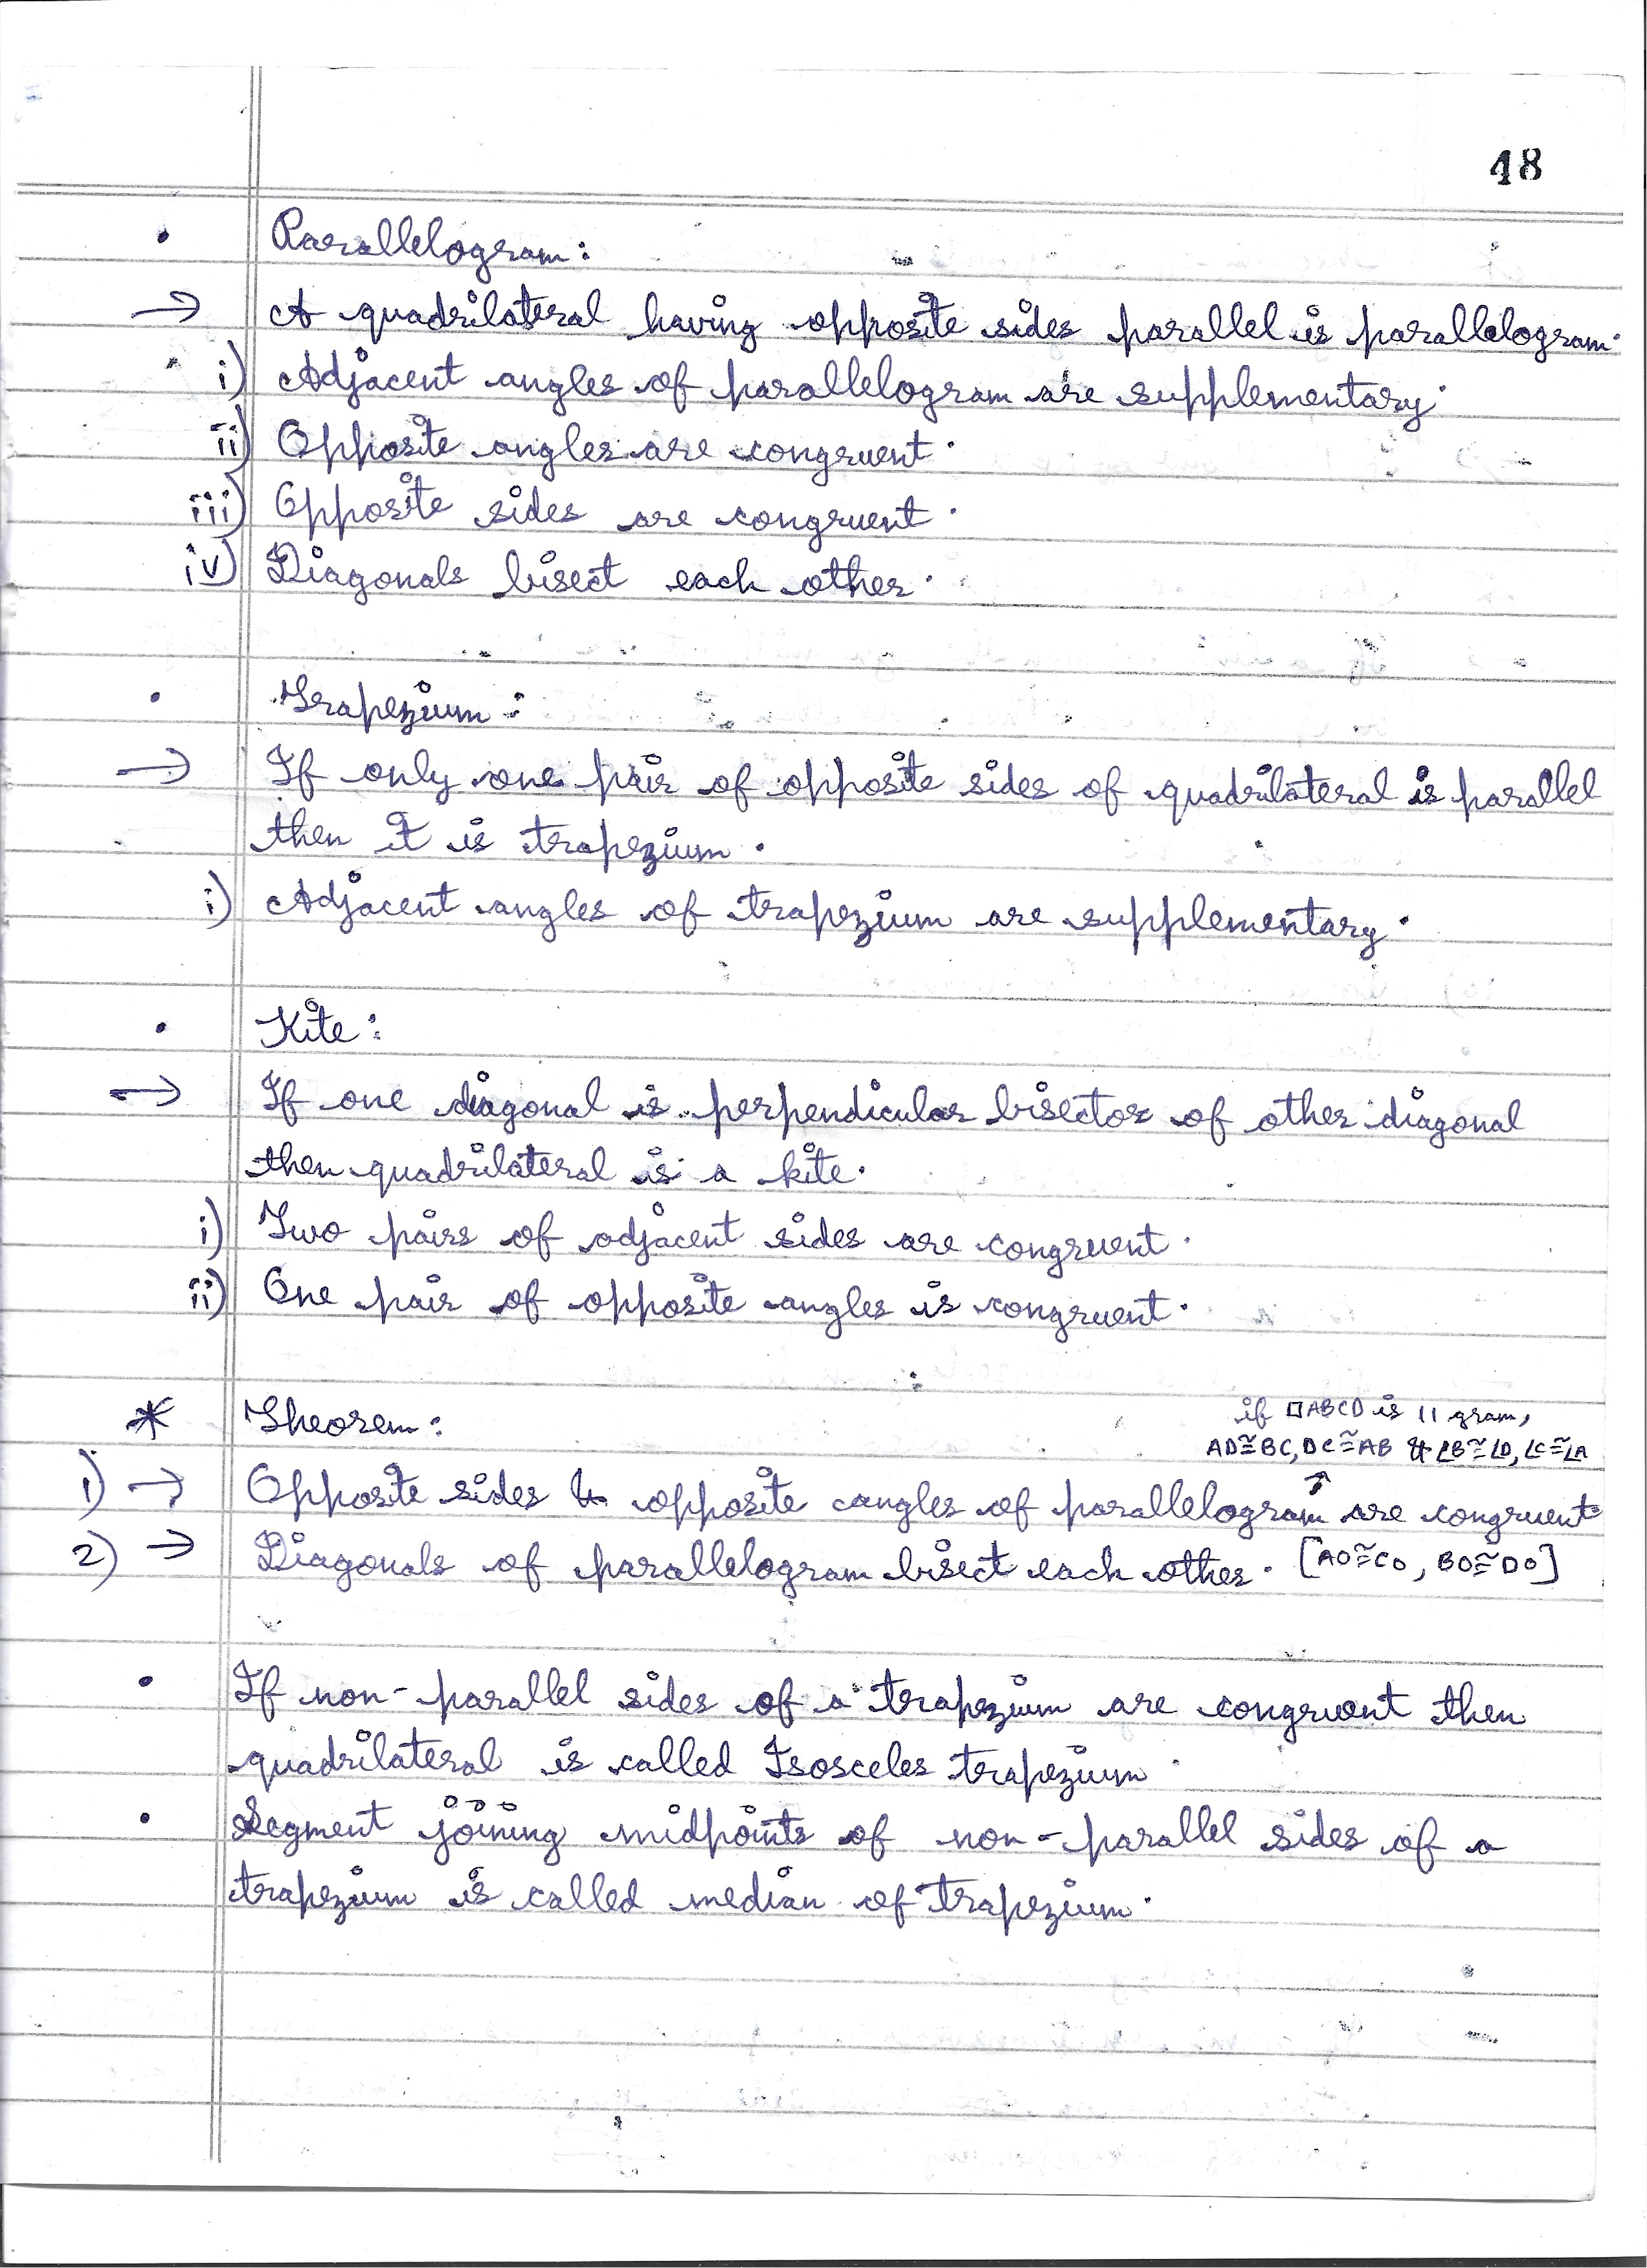 48
• Parallelogram:
→ A quadrilateral having opposite sides parallel is parallelogram.
i) Adjacent angles of parallelogram are supplementary.
ii) Opposite angles are congruent.
iii) Opposite sides are congruent.
iv) Diagonals bisect each other.
• Trapezium:
→ If only one pair of opposite sides of quadrilateral is parallel
then it is trapezium.
i) Adjacent angles of trapezium are supplementary.
• Kite:
→ If one diagonal is perpendicular bisector of other diagonal
then quadrilateral is a kite.
i) Two pairs of adjacent sides are congruent.
ii) One pair of opposite angles is congruent.
* Theorem:
if □ABCD is || gram,
AD≅BC, DC≅AB & ∠B≅∠D, ∠C≅∠A
1) → Opposite sides & opposite angles of parallelogram are congruent.
2) → Diagonals of parallelogram bisect each other. [AO≅CO, BO≅DO]
• If non-parallel sides of a trapezium are congruent then
quadrilateral is called Isosceles trapezium.
• Segment joining midpoints of non-parallel sides of a
trapezium is called median of trapezium.